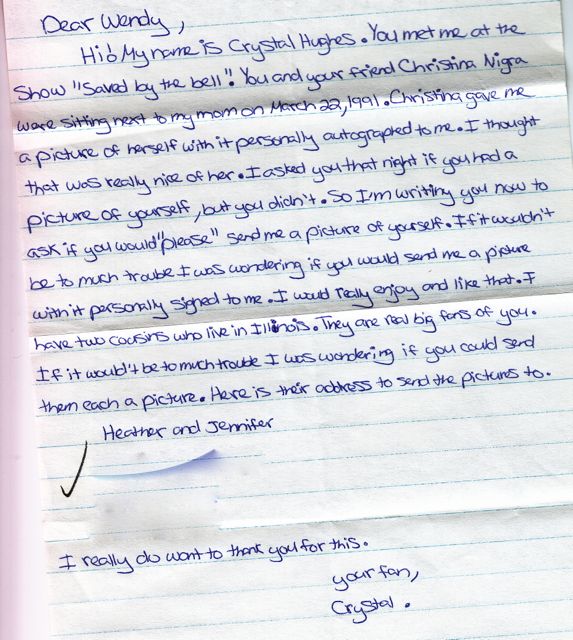 Dear Wendy,
Hi! My name is Crystal Hughes. You met me at the
Show "Saved by the bell". You and your friend Christina Nigra
were sitting next to my mom on March 22, 1991. Christina gave me
a picture of herself with it personally autographed to me. I thought
that was really nice of her. I asked you that night if you had a
picture of yourself, but you didn't. So I'm writing you now to
ask if you would "please" send me a picture of yourself. If it wouldn't
be to much trouble I was wondering if you would send me a picture
with it personally signed to me. I would really enjoy and like that. I
have two cousins who live in Illinois. They are real big fans of you.
If it would't be to much trouble I was wondering if you could send
them each a picture. Here is their address to send the pictures to.
Heather and Jennifer
I really do want to thank you for this.
your fan,
Crystal.